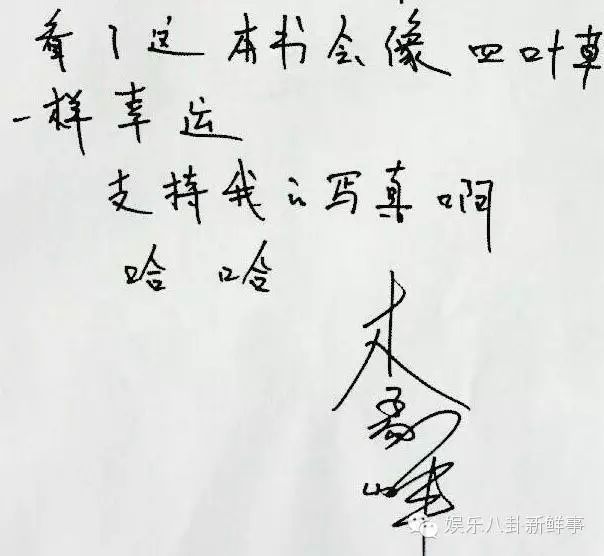 看了这本书会像四叶草
一样幸运
支持我的写真啊
哈哈
李易峰
娱乐八卦新鲜事